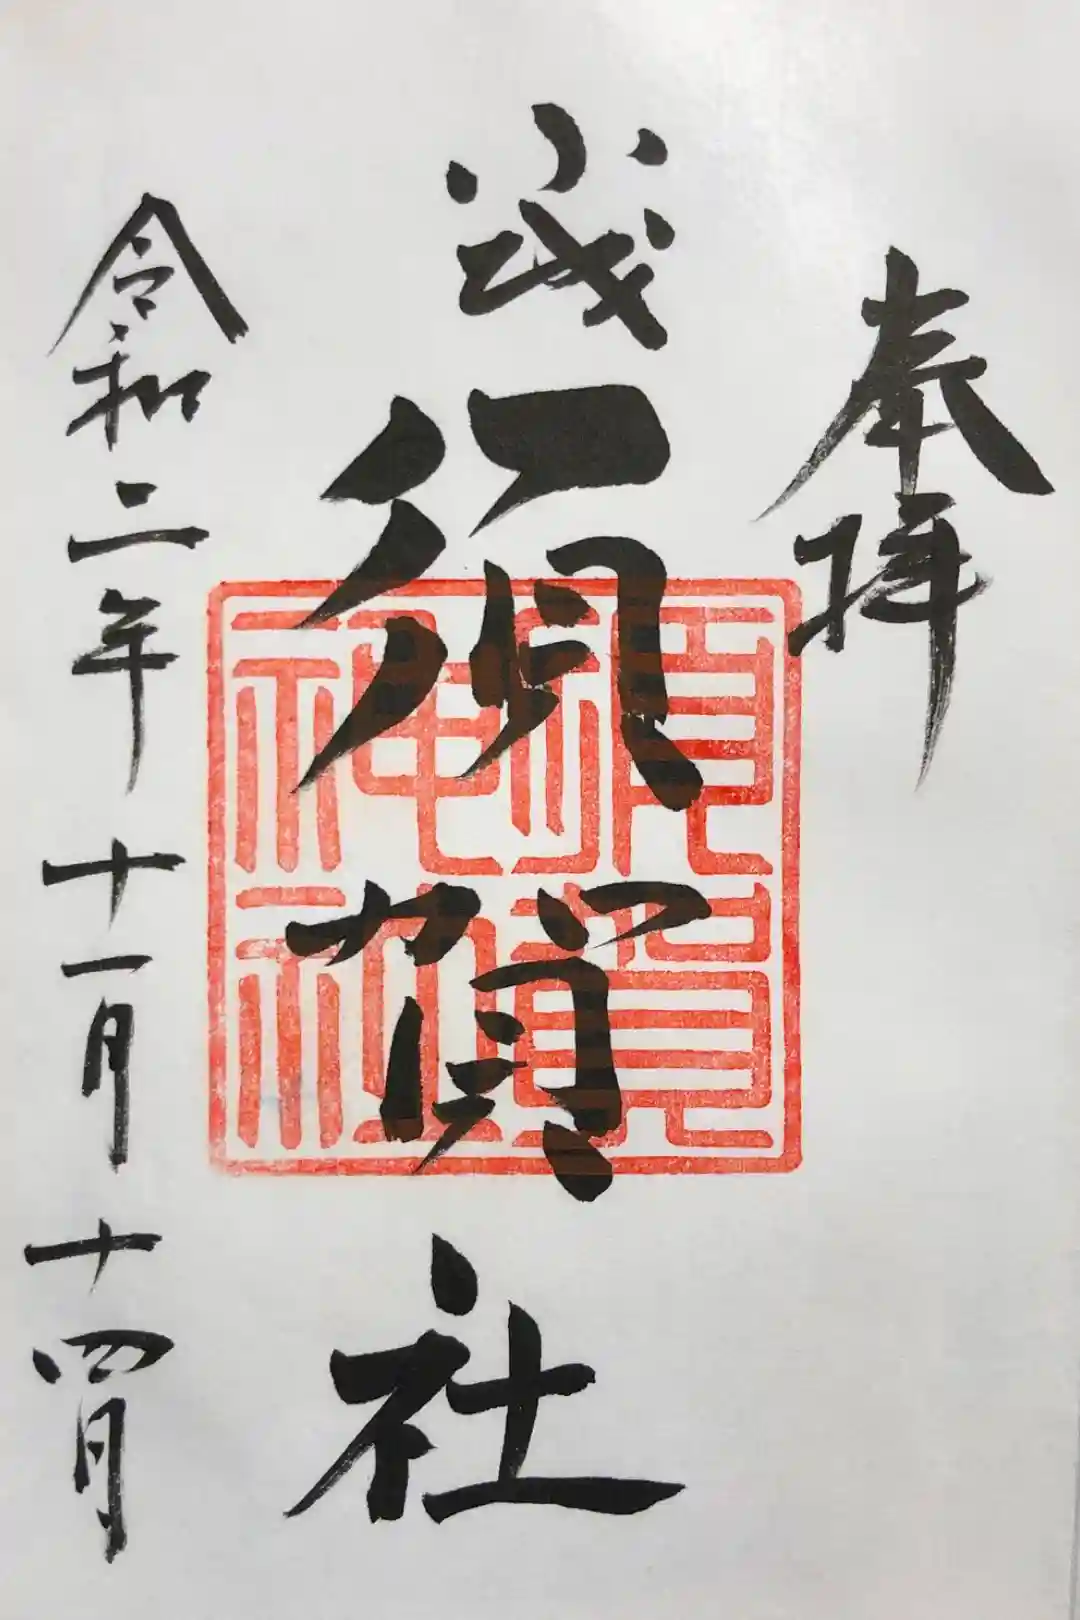 奉拝
須賀社
令和二年十一月十四日
須賀
神社